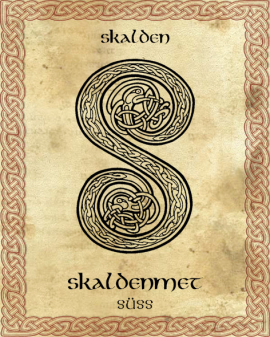 Skalden
Skaldenmet
süss